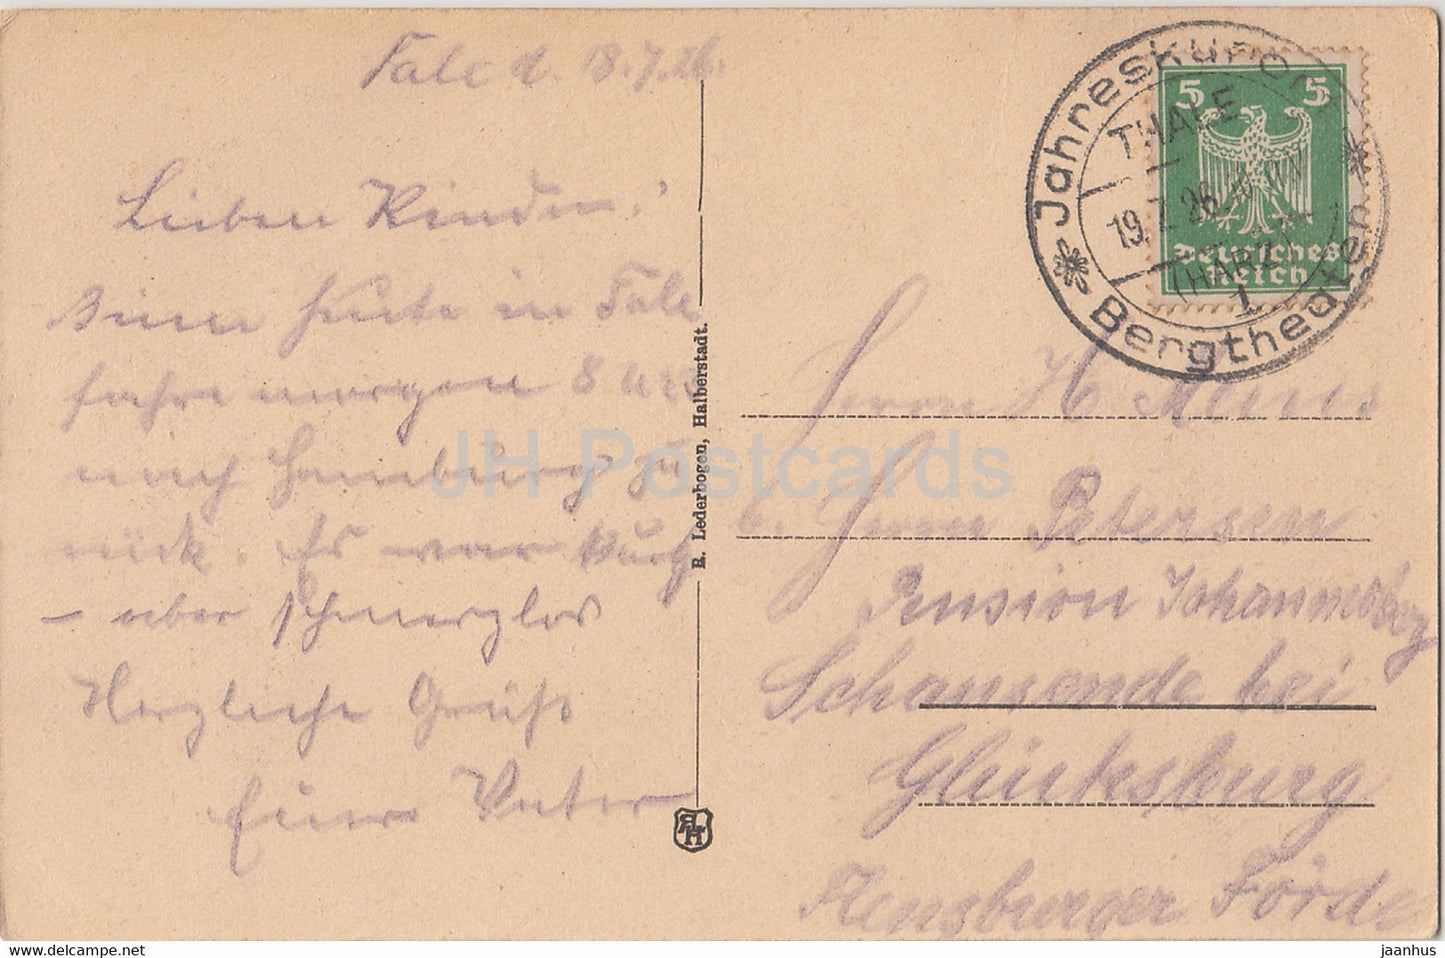 Tale d. 18.7.26.
Lieben Kinder!
Sinn heute in Tale
fahre morgen 8 Uhr
nach Hamburg zu
rück. Es war kurz
– aber schmerzlos
Herzliche Grüße
Euer Vater
R. Lederbogen, Halberstadt.
Jahreskurort
THALE
19.7.26
(HARZ)
1
Bergtheater
5 5
Deutsches
Reich
Herrn H.
b. Herrn Petersen
Pension Johannesberg
Schausende bei
Glücksburg
Flensburger Förde
JH Postcards
www.delcampe.net
jaanhus